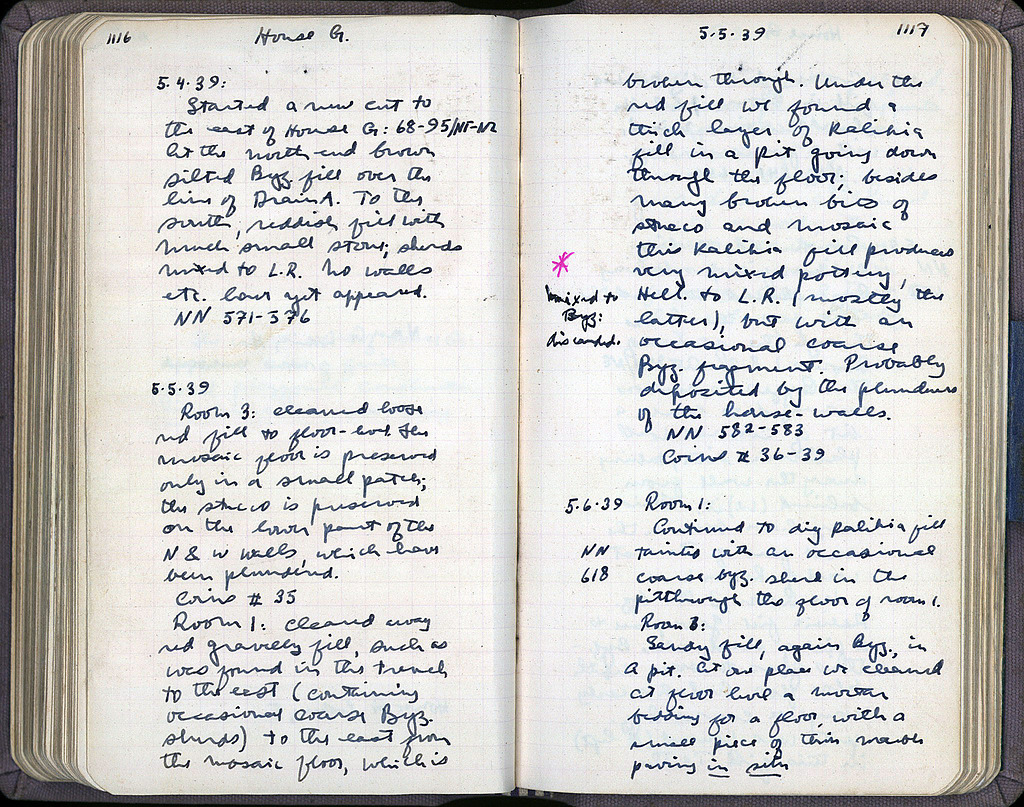 1116
House G.
5.4.39:
Started a new cut to
the east of House G: 68-95/ΝΓ-ΝΖ
At the north end brown
silted Byz. fill over the
line of Drain A. To the
south, reddish fill with
much small stone; sherds
mixed to L.R. No walls
etc. have yet appeared.
NN 571-576
5.5.39
Room 3: cleaned loose
red fill to floor-level. The
mosaic floor is preserved
only in a small patch;
the stucco is preserved
on the lower part of the
N & W walls, which have
been plundered.
Coins # 35
Room 1: cleared away
red gravelly fill, such as
was found in the trench
to the east (containing
occasional coarse Byz.
sherds) to the east from
the mosaic floor, which is
5.5.39
1117
broken through. Under the
red fill we found a
thick layer of Kalikia
fill in a pit going down
through the floor; besides
many broken bits of
stucco and mosaic
this Kalikia fill produces
very mixed pottery,
Hell. to L.R. (mostly the
latter), but with an
occasional coarse
Byz. fragment. Probably
deposited by the plunderers
of the house-walls.
NN 582-583
Coins # 36-39
*
mixed to
Byz:
discarded.
5.6.39 Room 1:
Continued to dig Kalikia fill
tainted with an occasional
coarse byz. sherd in the
pit through the floor of room 1.
NN
618
Room 3:
Sandy fill, again Byz., in
a pit. At one place we cleaned
at floor level a mortar
bedding for a floor, with a
small piece of thin marble
paving in situ